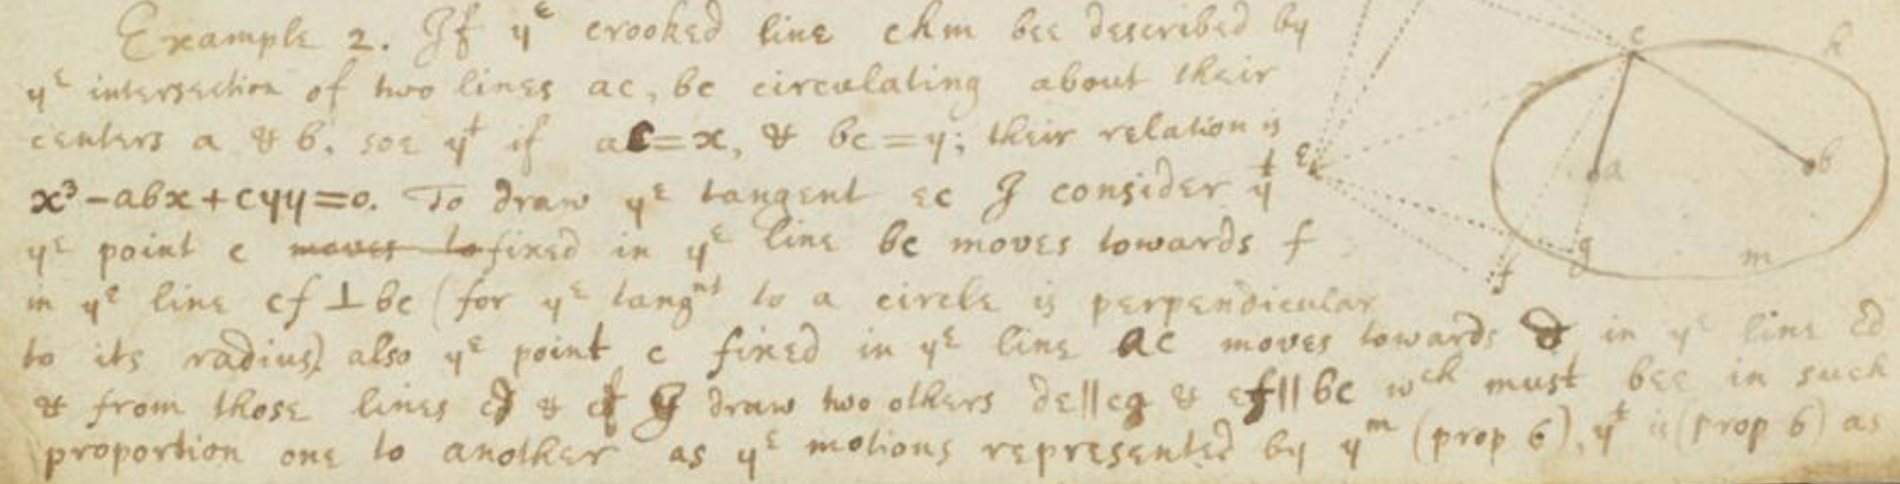 Example 2. If yᵉ crooked line chm bee described by
yᵉ intersection of two lines ac, bc circulating about their
centers a & b, soe yᵗ if ac=x, & bc=y; their relation is
x³-abx+cyy=0. To draw yᵉ tangent ec I consider yᵗ
yᵉ point c moves to fixed in yᵉ line bc moves towards f
in yᵉ line cf ⊥ bc (for yᵉ tangⁿᵗ to a circle is perpendicular
to its radius) also yᵉ point c fixed in yᵉ line ac moves towards d in yᵉ line cd
& from those lines cd & cf I draw two others de||cg & ef||bc wᶜʰ must bee in such
proportion one to another as yᵉ motions represented by yᵐ (prop 6), yᵗ is (prop 6) as
c
h
e
a
b
f
g
m